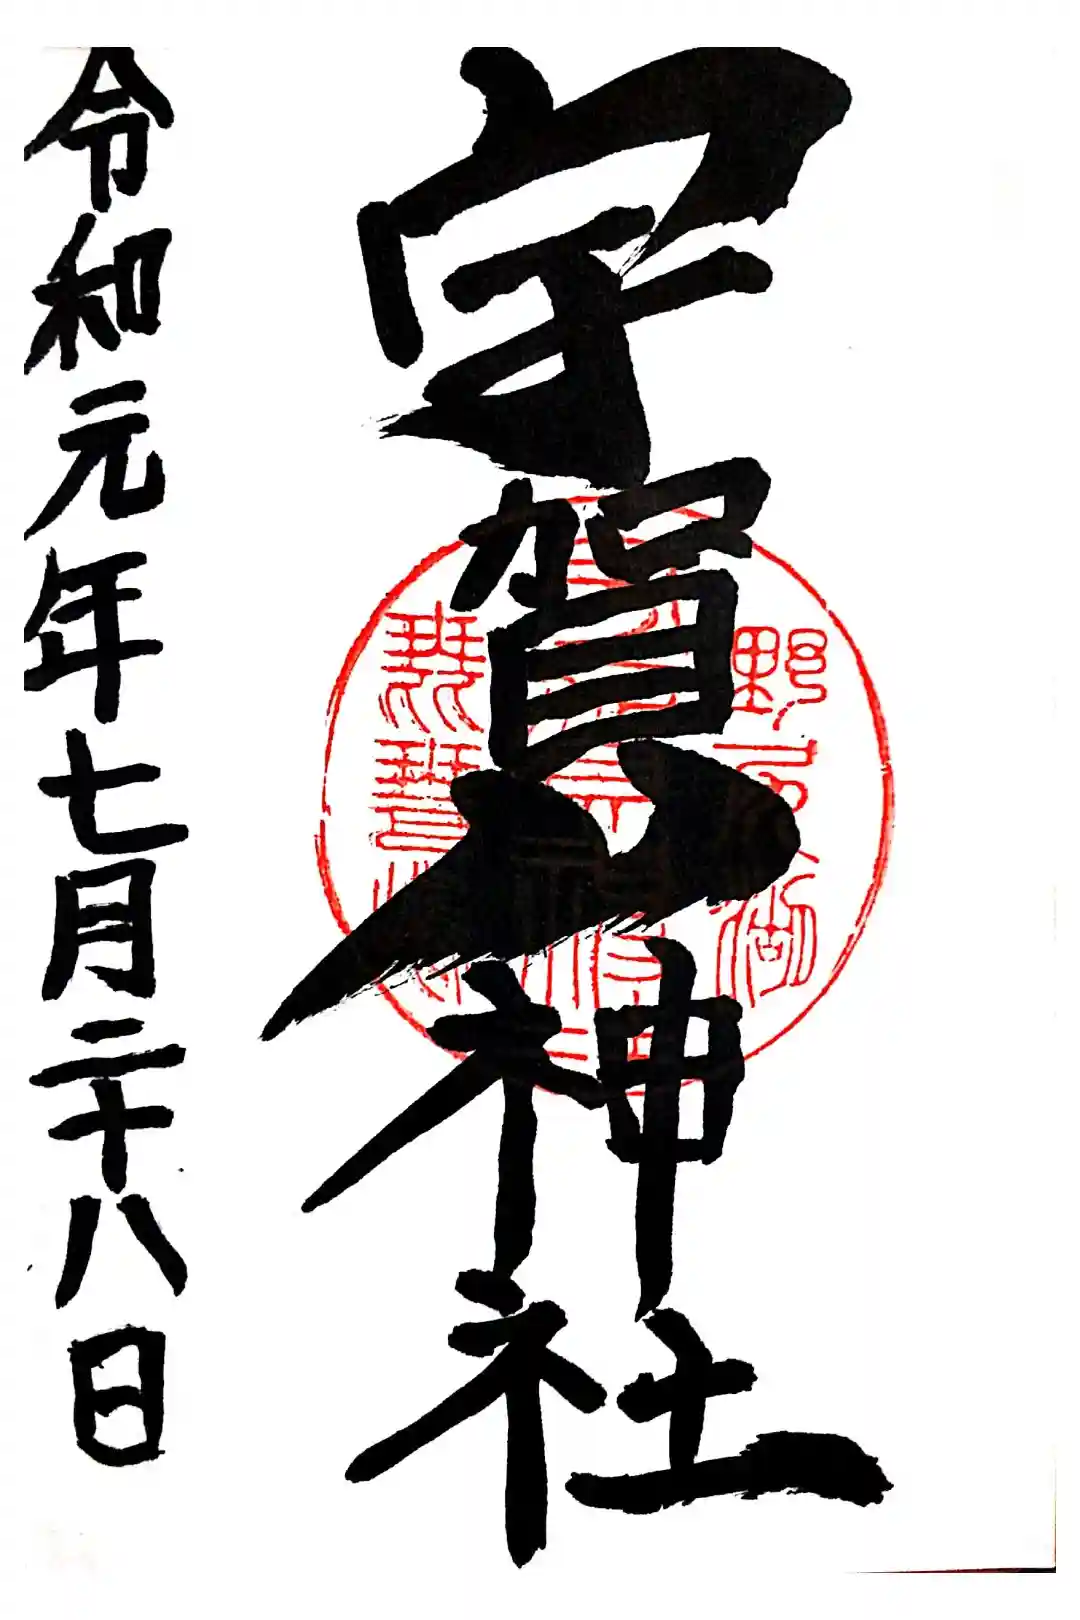 宇賀神社
令和元年七月二十八日